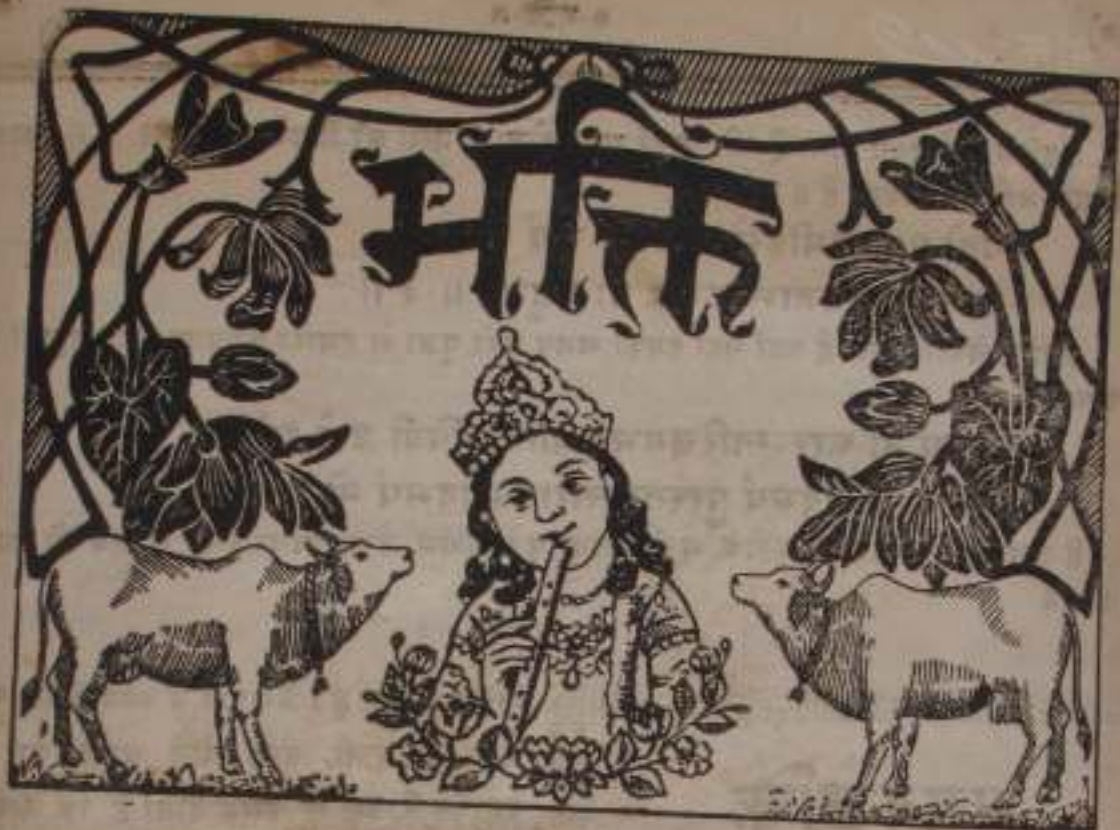 भक्ति